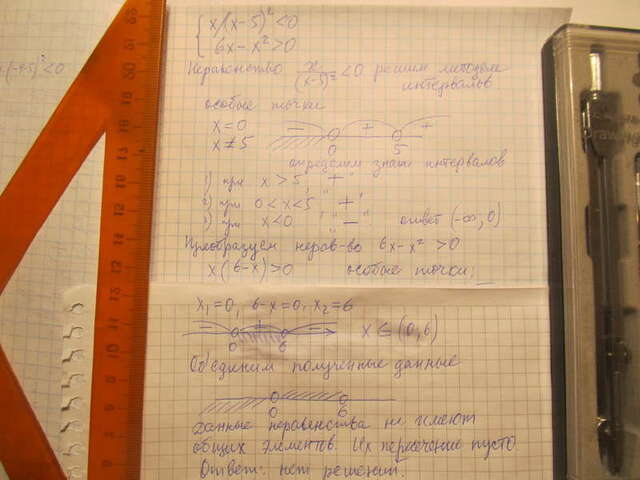 x/(x-5)² < 0
6x - x² > 0
Неравенство x/(x-5)² < 0 решим методом
интервалов
особые точки
x = 0
x ≠ 5
- + +
0 5
определим знаки интервалов
1) при x > 5, "+"
2) при 0 < x < 5 "+"
3) при x < 0, "-". ответ (-∞, 0)
Преобразуем нерав-во 6x - x² > 0
x(6-x) > 0 особые точки:
x₁ = 0, 6-x = 0, x₂ = 6
- + -
0 6
x ∈ (0, 6)
Объединим полученные данные
0 6
данные неравенства не имеют
общих элементов. Их пересечение пусто.
Ответ: нет решений.